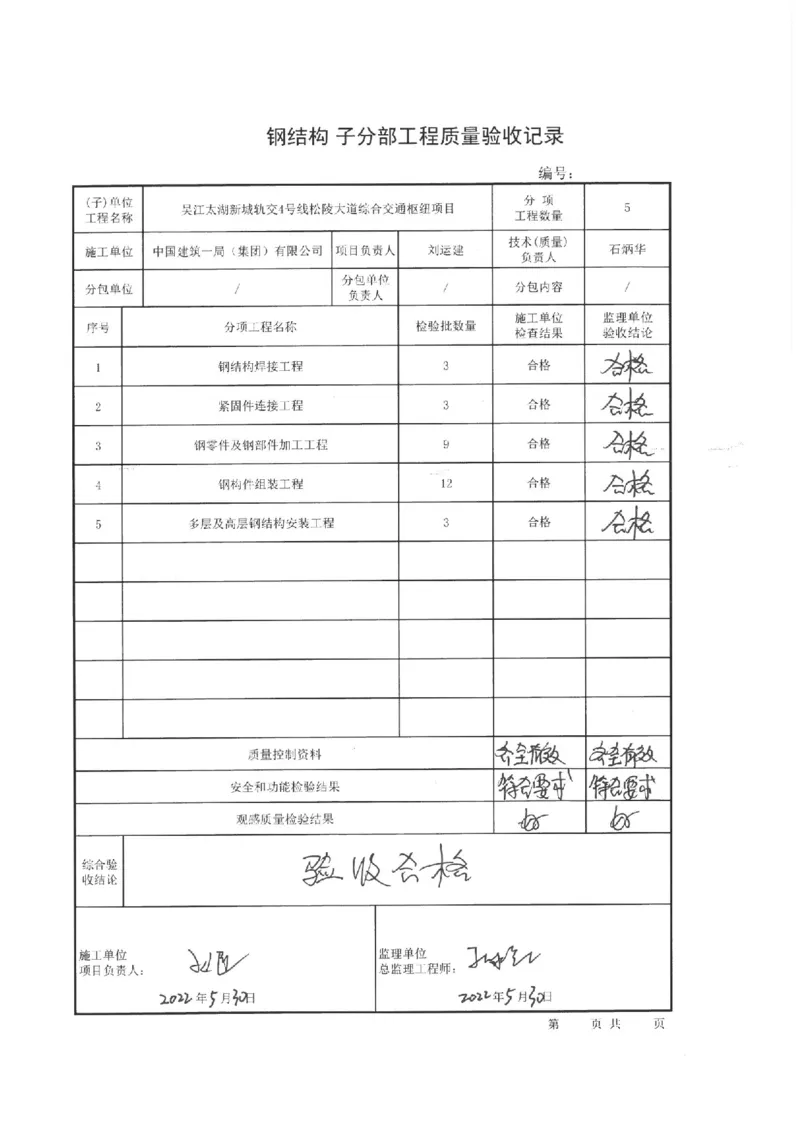 钢结构 子分部工程质量验收记录
编号：
(子)单位工程名称 吴江太湖新城轨交4号线松陵大道综合交通枢纽项目 分 项工程数量 5
施工单位 中国建筑一局（集团）有限公司 项目负责人 刘运建 技术(质量)负责人 石炳华
分包单位 / 分包单位负责人 / 分包内容 /
序号 分项工程名称 检验批数量 施工单位检查结果 监理单位验收结论
1 钢结构焊接工程 3 合格 合格
2 紧固件连接工程 3 合格 合格
3 钢零件及钢部件加工工程 9 合格 合格
4 钢构件组装工程 12 合格 合格
5 多层及高层钢结构安装工程 3 合格 合格
质量控制资料 齐全有效 齐全有效
安全和功能检验结果 符合要求 符合要求
观感质量检验结果 好 好
综合验收结论 验收合格
施工单位
项目负责人：
2022年5月30日
监理单位
总监理工程师：
2022年5月30日
第 页 共 页